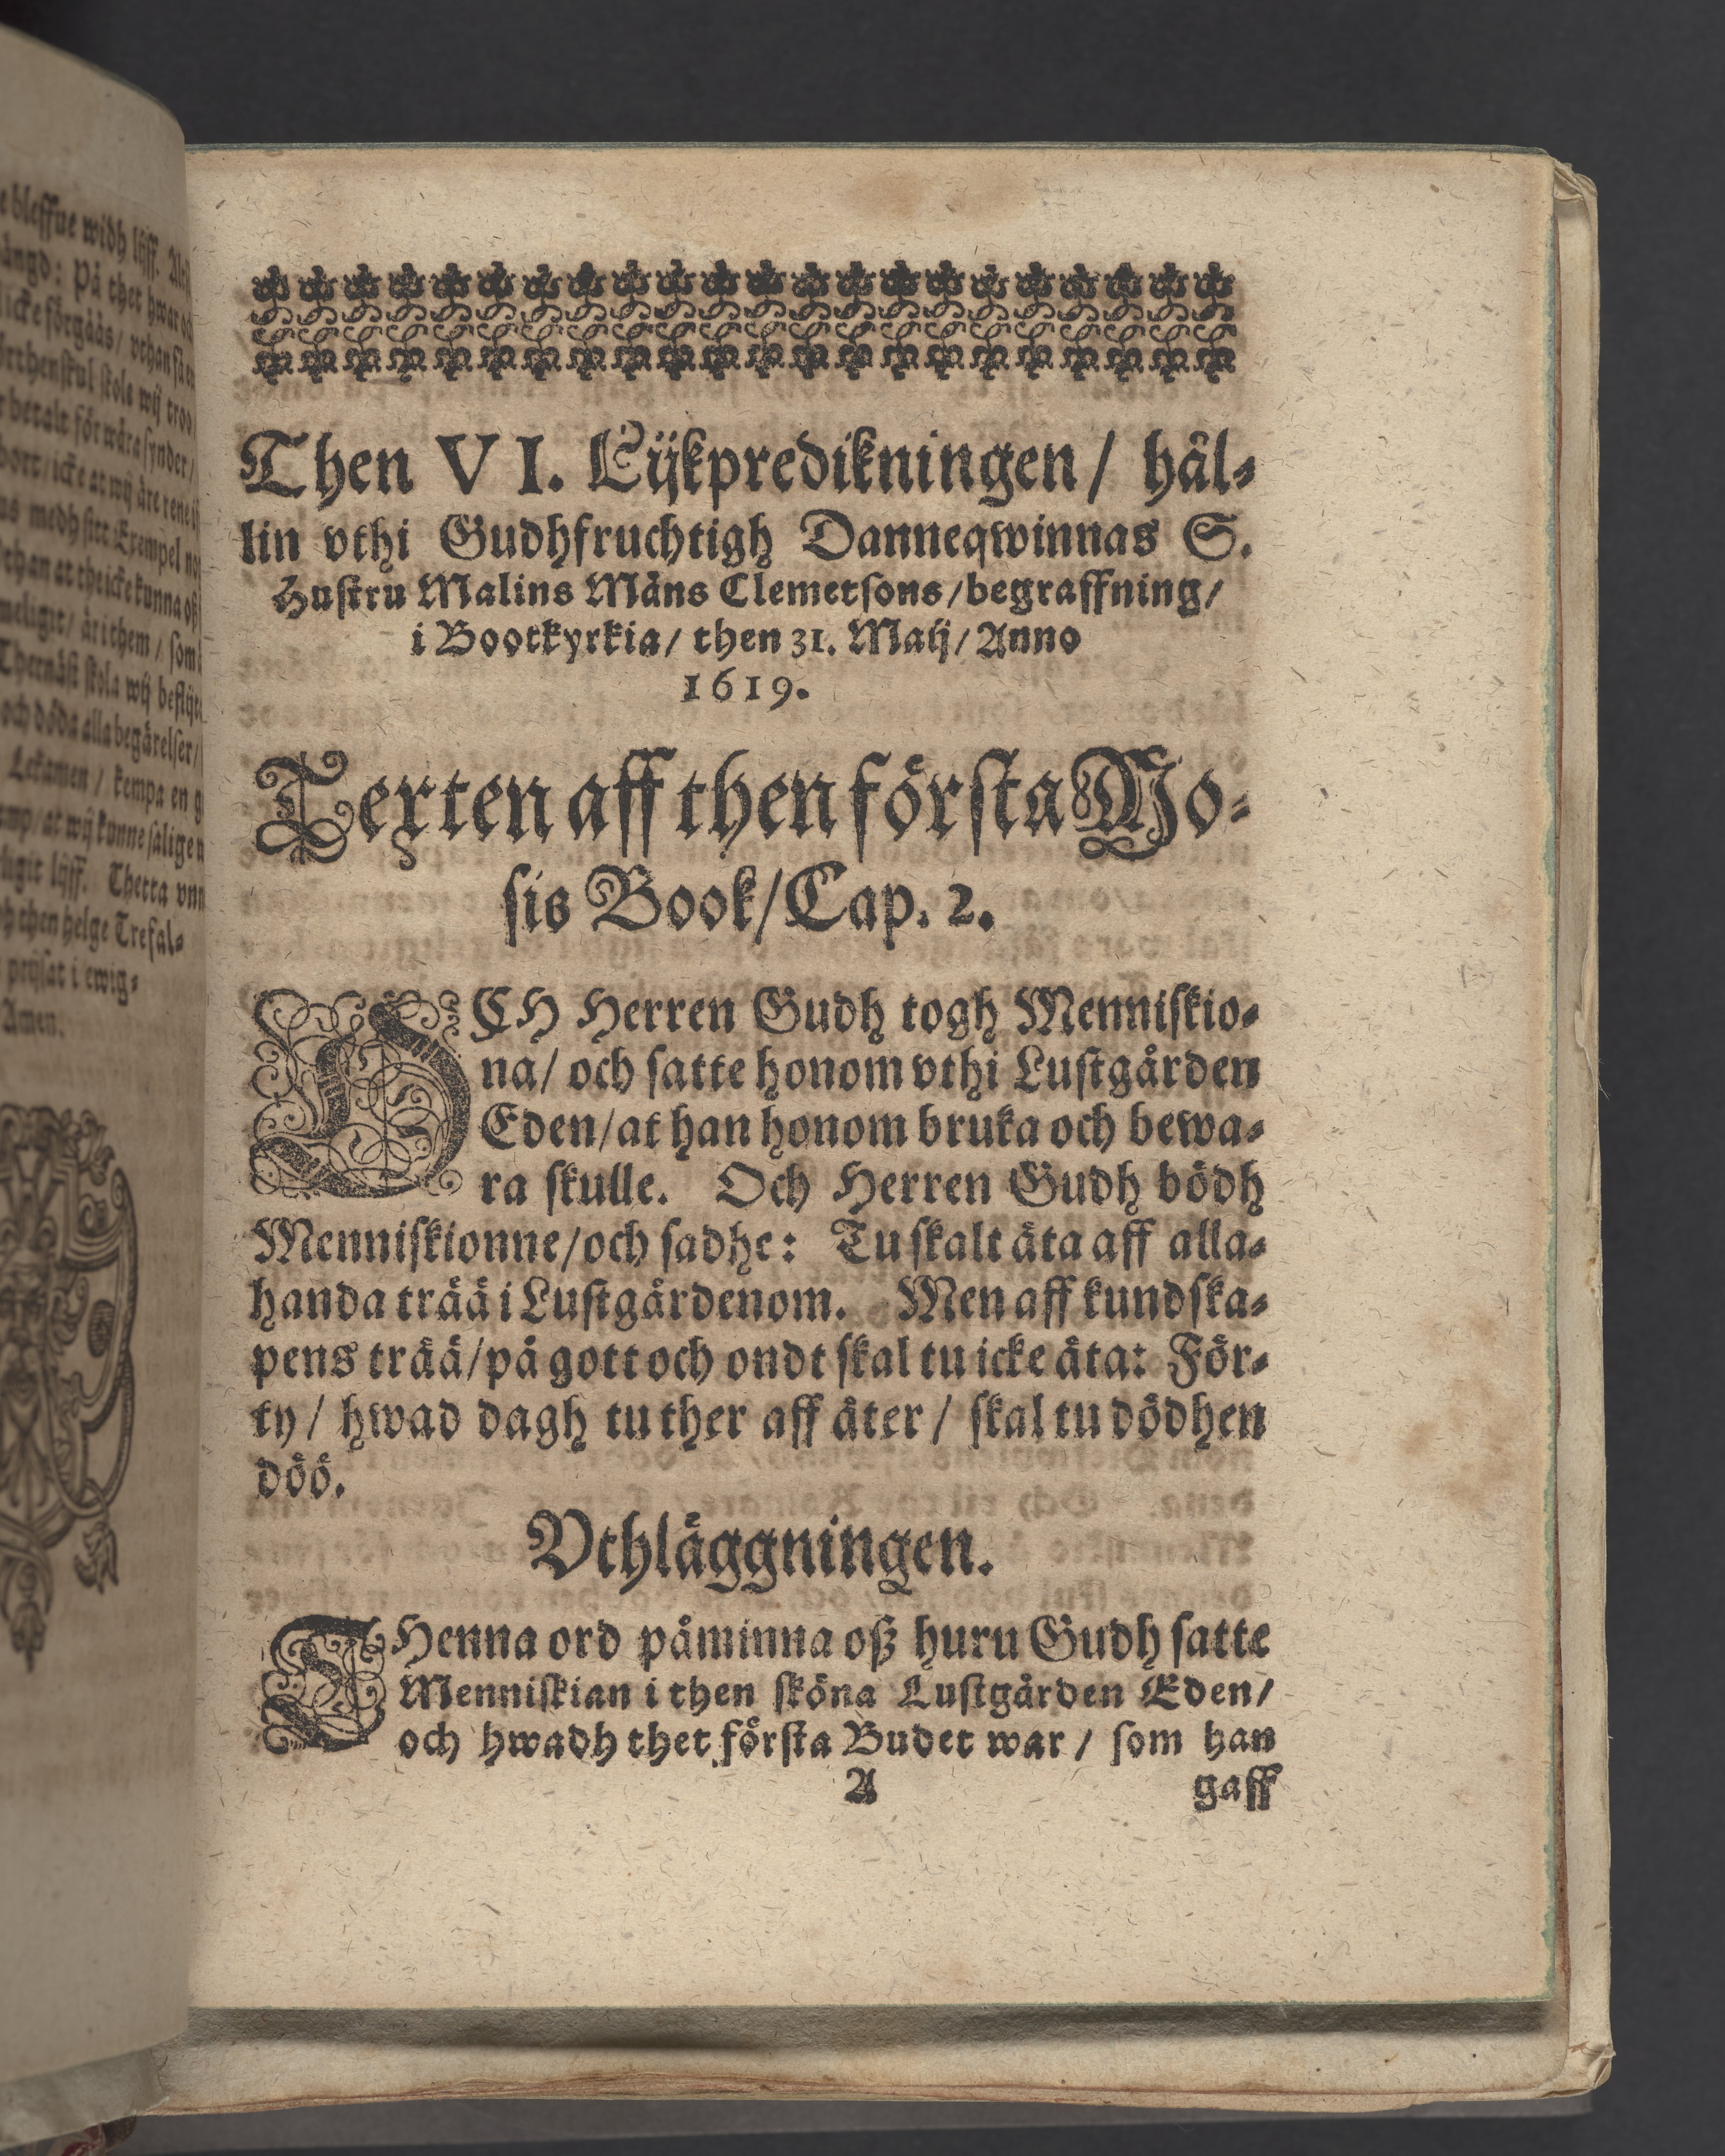 e bleffue widh lijff.
ångd: På thet hwar och
icke förgåås/ vthan få
örthenskul skole wij troo
betalt för wåra synder/
bort/ icke at wij äre rene
medh sitt Exempel
vthan at the icke kunna oß
meligit/ är i them/ som
Thernäst skola wij
och döda alla begärelser/
Lekamen/ kempa en
at wij kunne salige
lijff. Thetta
then helge Trefal-
prijsat i ewig-
Amen.
Then VI. Lijkpredikningen/ hål-
lin vthi Gudhfruchtigh Danneqwinnas S.
Hustru Malins Måns Clemetsons/begraffning/
i Bootkyrkia/ then 31. Maij/ Anno
1619.
Texten aff then första Mo-
sis Book/Cap. 2.
OCH Herren Gudh togh Menniskio-
na/ och satte honom vthi Lustgården
Eden/at han honom bruka och bewa-
ra skulle. Och Herren Gudh bödh
Menniskionne/och sadhe: Tu skalt äta aff alla-
handa trää i Lustgårdenom. Men aff kundska-
pens trää/på gott och ondt skal tu icke äta: För-
ty/ hwad dagh tu ther aff äter/ skal tu dödhen
döö.
Vthläggningen.
THenna ord påminna oß huru Gudh satte
Menniskian i then sköna Lustgården Eden/
och hwadh thet första Budet war/ som han
A gaff